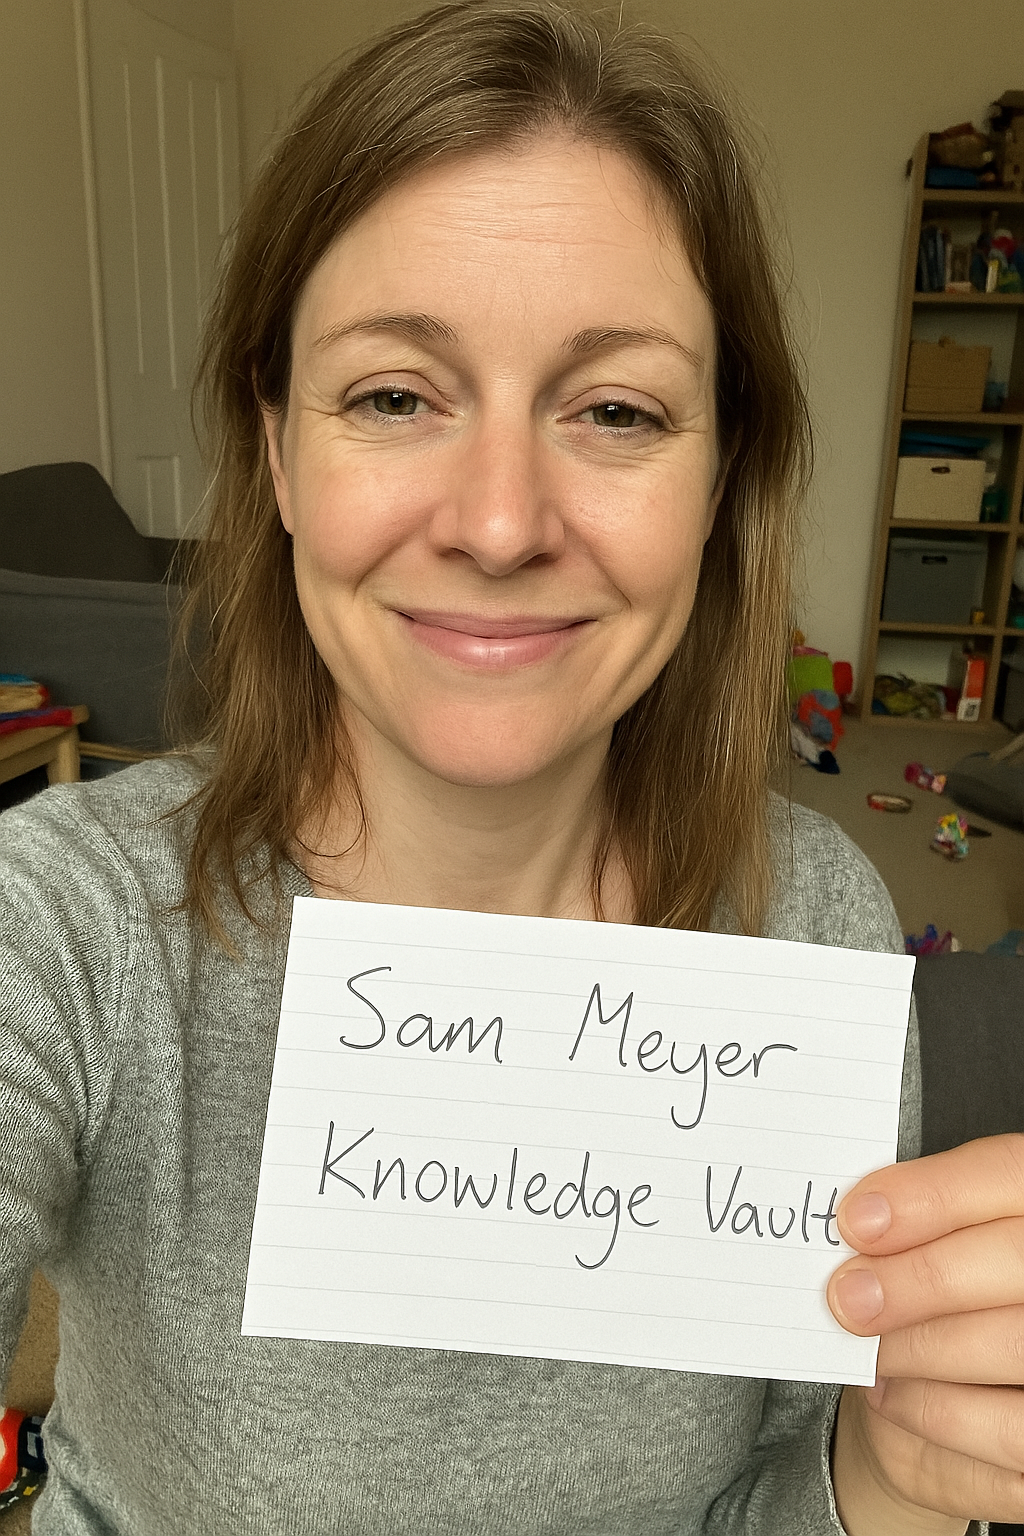 Sam Meyer
Knowledge Vault